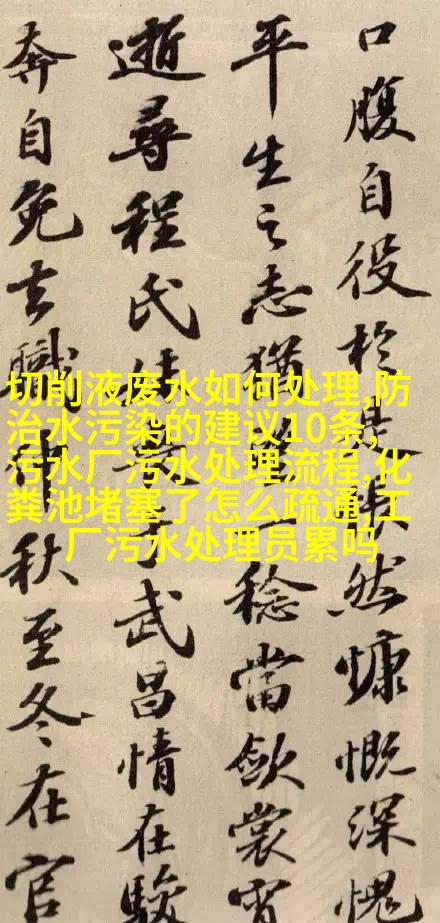 口腹自役於是然慷慨深愧
平生之志猶一稔當斂裳宵
逝尋程氏于武昌情在駿
奔自免去職秋至冬在官
切削液废水如何处理,防
治水污染的建议10条,
污水厂污水处理流程,化
粪池堵塞了怎么疏通,工
厂污水处理员累吗